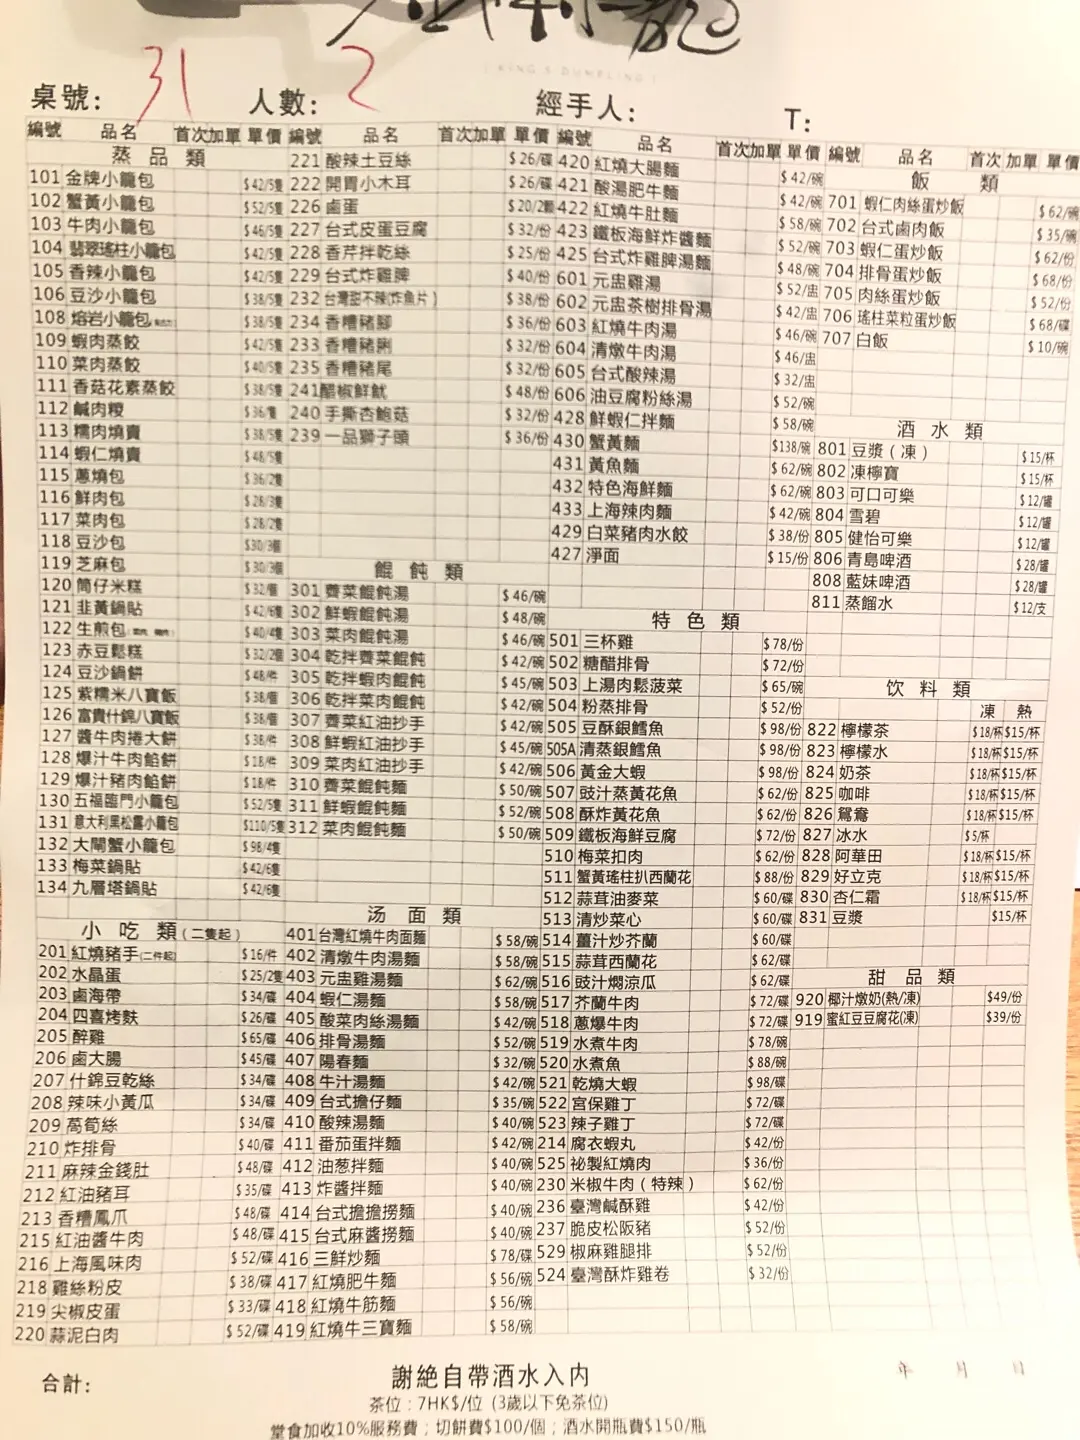 KING'S DUMPLING
桌號: 31 人數: 2 經手人: T:
編號 品名 首次 加單 單價 編號 品名 首次 加單 單價 編號 品名 首次 加單 單價 編號 品名 首次 加單 單價
蒸品類
101 金牌小籠包 $42/5隻
102 蟹黃小籠包 $52/5隻
103 牛肉小籠包 $46/5隻
104 翡翠瑤柱小籠包 $42/5隻
105 香辣小籠包 $42/5隻
106 豆沙小籠包 $38/5隻
108 熔岩小籠包 $38/5隻
109 蝦肉蒸餃 $42/5隻
110 菜肉蒸餃 $40/5隻
111 香菇花素蒸餃 $38/5隻
112 鹹肉糉 $36/隻
113 糯肉燒賣 $38/5隻
114 蝦仁燒賣 $48/5隻
115 蔥燒包 $36/2隻
116 鮮肉包 $28/3隻
117 菜肉包 $28/2隻
118 豆沙包 $30/3個
119 芝麻包 $30/3個
120 筒仔米糕 $32/個
121 韭黃鍋貼 $42/6隻
122 生煎包 $40/4隻
123 赤豆鬆糕 $32/2個
124 豆沙鍋餅 $48/件
125 紫糯米八寶飯 $38/個
126 富貴什錦八寶飯 $38/個
127 醬牛肉捲大餅 $38/件
128 爆汁牛肉餡餅 $18/件
129 爆汁豬肉餡餅 $18/件
130 五福臨門小籠包 $52/5隻
131 意大利黑松露小籠包 $110/5隻
132 大閘蟹小籠包 $98/4隻
133 梅菜鍋貼 $42/6隻
134 九層塔鍋貼 $42/6隻
小吃類(二隻起)
201 紅燒豬手(二件起) $16/件
202 水晶蛋 $25/2隻
203 鹵海帶 $34/碟
204 四喜烤麩 $26/碟
205 醉雞 $65/碟
206 鹵大腸 $45/碟
207 什錦豆乾絲 $34/碟
208 辣味小黃瓜 $34/碟
209 萵筍絲 $34/碟
210 炸排骨 $40/碟
211 麻辣金錢肚 $48/碟
212 紅油豬耳 $35/碟
213 香糟鳳爪 $48/碟
215 紅油醬牛肉 $48/碟
216 上海風味肉 $52/碟
218 雞絲粉皮 $38/碟
219 尖椒皮蛋 $33/碟
220 蒜泥白肉 $52/碟
221 酸辣土豆絲 $26/碟
222 開胃小木耳 $26/碟
226 鹵蛋 $20/2顆
227 台式皮蛋豆腐 $32/份
228 香芹拌乾絲 $25/份
229 台式炸雞脾 $40/份
232 台灣甜不辣(炸魚片) $38/份
234 香糟豬腳 $36/份
233 香糟豬脷 $32/份
235 香糟豬尾 $32/份
241 醋椒鮮魷 $48/份
240 手撕杏鮑菇 $32/份
239 一品獅子頭 $36/份
餛飩類
301 薺菜餛飩湯 $46/碗
302 鮮蝦餛飩湯 $48/碗
303 菜肉餛飩湯 $46/碗
304 乾拌薺菜餛飩 $42/碗
305 乾拌蝦肉餛飩 $45/碗
306 乾拌菜肉餛飩 $42/碗
307 薺菜紅油抄手 $42/碗
308 鮮蝦紅油抄手 $45/碗
309 菜肉紅油抄手 $42/碗
310 薺菜餛飩麵 $50/碗
311 鮮蝦餛飩麵 $52/碗
312 菜肉餛飩麵 $50/碗
汤面類
401 台灣紅燒牛肉面麵 $58/碗
402 清燉牛肉湯麵 $58/碗
403 元盅雞湯麵 $62/碗
404 蝦仁湯麵 $58/碗
405 酸菜肉絲湯麵 $42/碗
406 排骨湯麵 $52/碗
407 陽春麵 $32/碗
408 牛汁湯麵 $42/碗
409 台式擔仔麵 $35/碗
410 酸辣湯麵 $40/碗
411 番茄蛋拌麵 $42/碗
412 油葱拌麵 $40/碗
413 炸醬拌麵 $40/碗
414 台式擔擔撈麵 $40/碗
415 台式麻醬撈麵 $40/碗
416 三鮮炒麵 $78/碟
417 紅燒肥牛麵 $56/碗
418 紅燒牛筋麵 $56/碗
419 紅燒牛三寶麵 $58/碗
420 紅燒大腸麵 $42/碗
421 酸湯肥牛麵 $42/碗
422 紅燒牛肚麵 $58/碗
423 鐵板海鮮炸醬麵 $52/碗
425 台式炸雞脾湯麵 $48/碗
601 元盅雞湯 $52/盅
602 元盅茶樹排骨湯 $42/盅
603 紅燒牛肉湯 $46/碗
604 清燉牛肉湯 $46/盅
605 台式酸辣湯 $32/盅
606 油豆腐粉絲湯 $52/碗
428 鮮蝦仁拌麵 $58/碗
430 蟹黃麵 $138/碗
431 黃魚麵 $62/碗
432 特色海鮮麵 $62/碗
433 上海辣肉麵 $42/碗
429 白菜豬肉水餃 $38/份
427 淨面 $15/份
特色類
501 三杯雞 $78/份
502 糖醋排骨 $72/份
503 上湯肉鬆菠菜 $65/碗
504 粉蒸排骨 $52/份
505 豆酥銀鱈魚 $98/份
505A 清蒸銀鱈魚 $98/份
506 黃金大蝦 $98/份
507 豉汁蒸黃花魚 $62/份
508 酥炸黃花魚 $62/份
509 鐵板海鮮豆腐 $72/份
510 梅菜扣肉 $62/份
511 蟹黃瑤柱扒西蘭花 $88/份
512 蒜茸油麥菜 $60/碟
513 清炒菜心 $60/碟
514 薑汁炒芥蘭 $60/碟
515 蒜茸西蘭花 $62/碟
516 豉汁燜涼瓜 $62/碟
517 芥蘭牛肉 $72/碟
518 蔥爆牛肉 $72/碟
519 水煮牛肉 $78/碗
520 水煮魚 $88/碗
521 乾燒大蝦 $98/碟
522 宮保雞丁 $72/碟
523 辣子雞丁 $72/碟
214 腐衣蝦丸 $42/份
525 祕製紅燒肉 $36/份
230 米椒牛肉(特辣) $62/份
236 臺灣鹹酥雞 $42/份
237 脆皮松阪豬 $52/份
529 椒麻雞腿排 $52/份
524 臺灣酥炸雞卷 $32/份
飯類
701 蝦仁肉絲蛋炒飯 $62/碗
702 台式鹵肉飯 $35/碗
703 蝦仁蛋炒飯 $62/份
704 排骨蛋炒飯 $68/份
705 肉絲蛋炒飯 $52/份
706 瑤柱菜粒蛋炒飯 $68/碟
707 白飯 $10/碗
酒水類
801 豆漿(凍) $15/杯
802 凍檸寶 $15/杯
803 可口可樂 $12/罐
804 雪碧 $12/罐
805 健怡可樂 $12/罐
806 青島啤酒 $28/罐
808 藍妹啤酒 $28/罐
811 蒸餾水 $12/支
饮料類
凍 熱
822 檸檬茶 $18/杯 $15/杯
823 檸檬水 $18/杯 $15/杯
824 奶茶 $18/杯 $15/杯
825 咖啡 $18/杯 $15/杯
826 鴛鴦 $18/杯 $15/杯
827 冰水 $5/杯
828 阿華田 $18/杯 $15/杯
829 好立克 $18/杯 $15/杯
830 杏仁霜 $18/杯 $15/杯
831 豆漿 $15/杯
甜品類
920 椰汁燉奶(熱/凍) $49/份
919 蜜紅豆豆腐花(凍) $39/份
合計:
謝絕自帶酒水入內
年 月 日
茶位:7HK$/位 (3歲以下免茶位)
堂食加收10%服務費;切餅費$100/個;酒水開瓶費$150/瓶